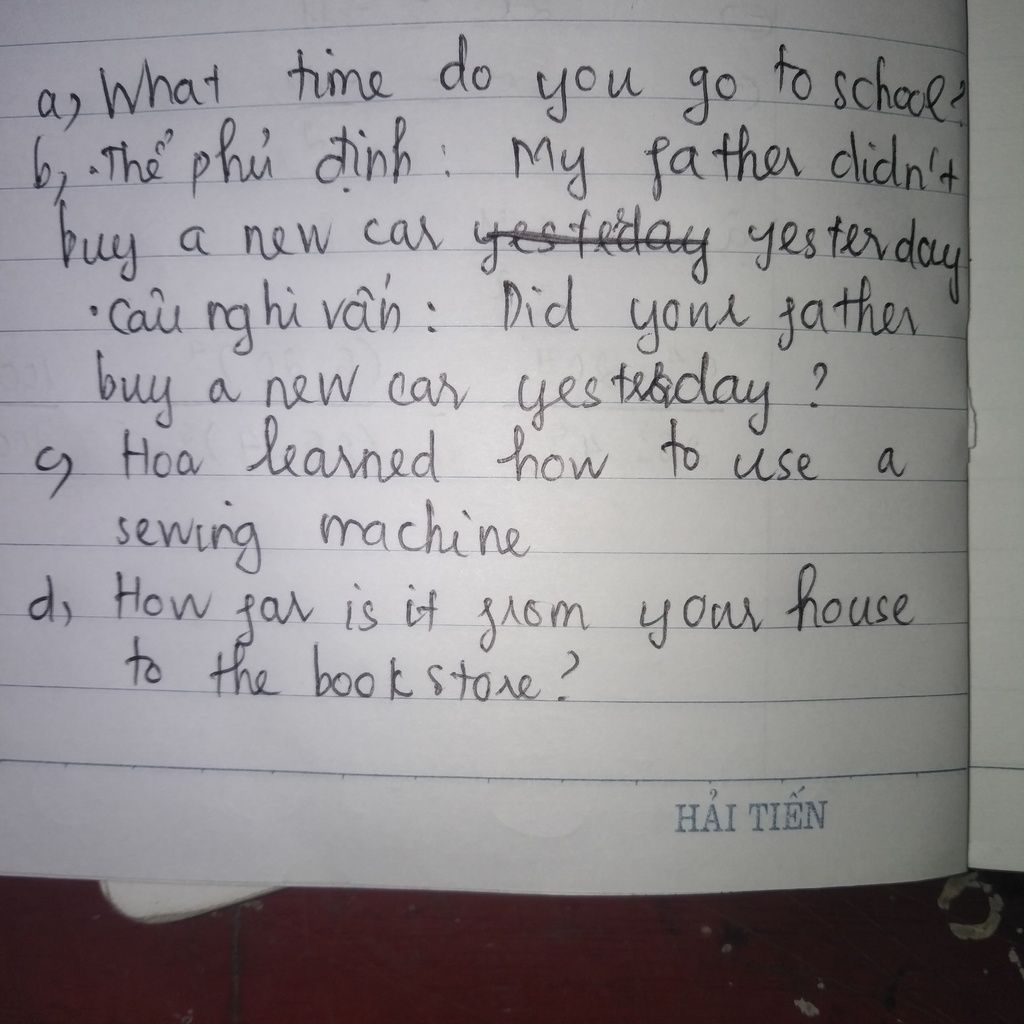 a, What time do you go to school?
b, • Thể phủ định : My father didn't
buy a new car yesteday yesterday
• Câu nghi vấn : Did your father
buy a new car yesterday ?
c, Hoa learned how to use a
sewing machine
d, How far is it from your house
to the bookstore?
HẢI TIẾN